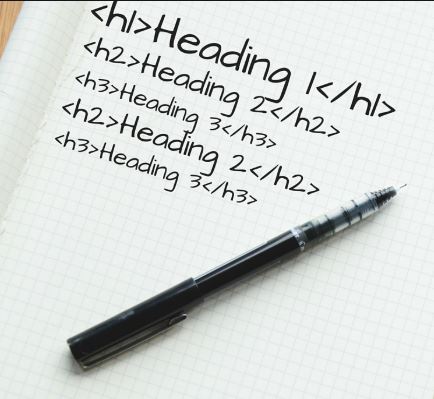 <h1>Heading 1</h1>
<h2>Heading 2</h2>
<h3>Heading 3</h3>
<h2>Heading 2</h2>
<h3>Heading 3</h3>